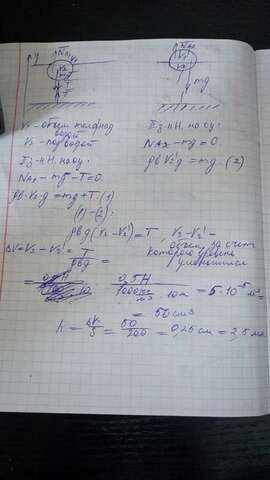 y
N A1
V1
V2
mg
T
N A2
V1
V2
mg
V1 - объем тела над водой
V2 - под водой
II з-н Н. на oy.
NA1 - mg - T = 0.
ρв V2 g = mg + T (1)
II з-н Н. на oy
NA2 - mg = 0.
ρв V2' g = mg. (2)
(1) - (2):
ρв g (V2 - V2') = T, V2 - V2' -
объем, за счет
которого уровень
уменьшится
ΔV = V2 - V2' = T / ρв g =
= 0,5Н / 1000 кг/м3 · 10 = 5·10^-5 м3 =
= 50 см3
h = ΔV / S = 50 / 200 = 0,25 см = 2,5 мм